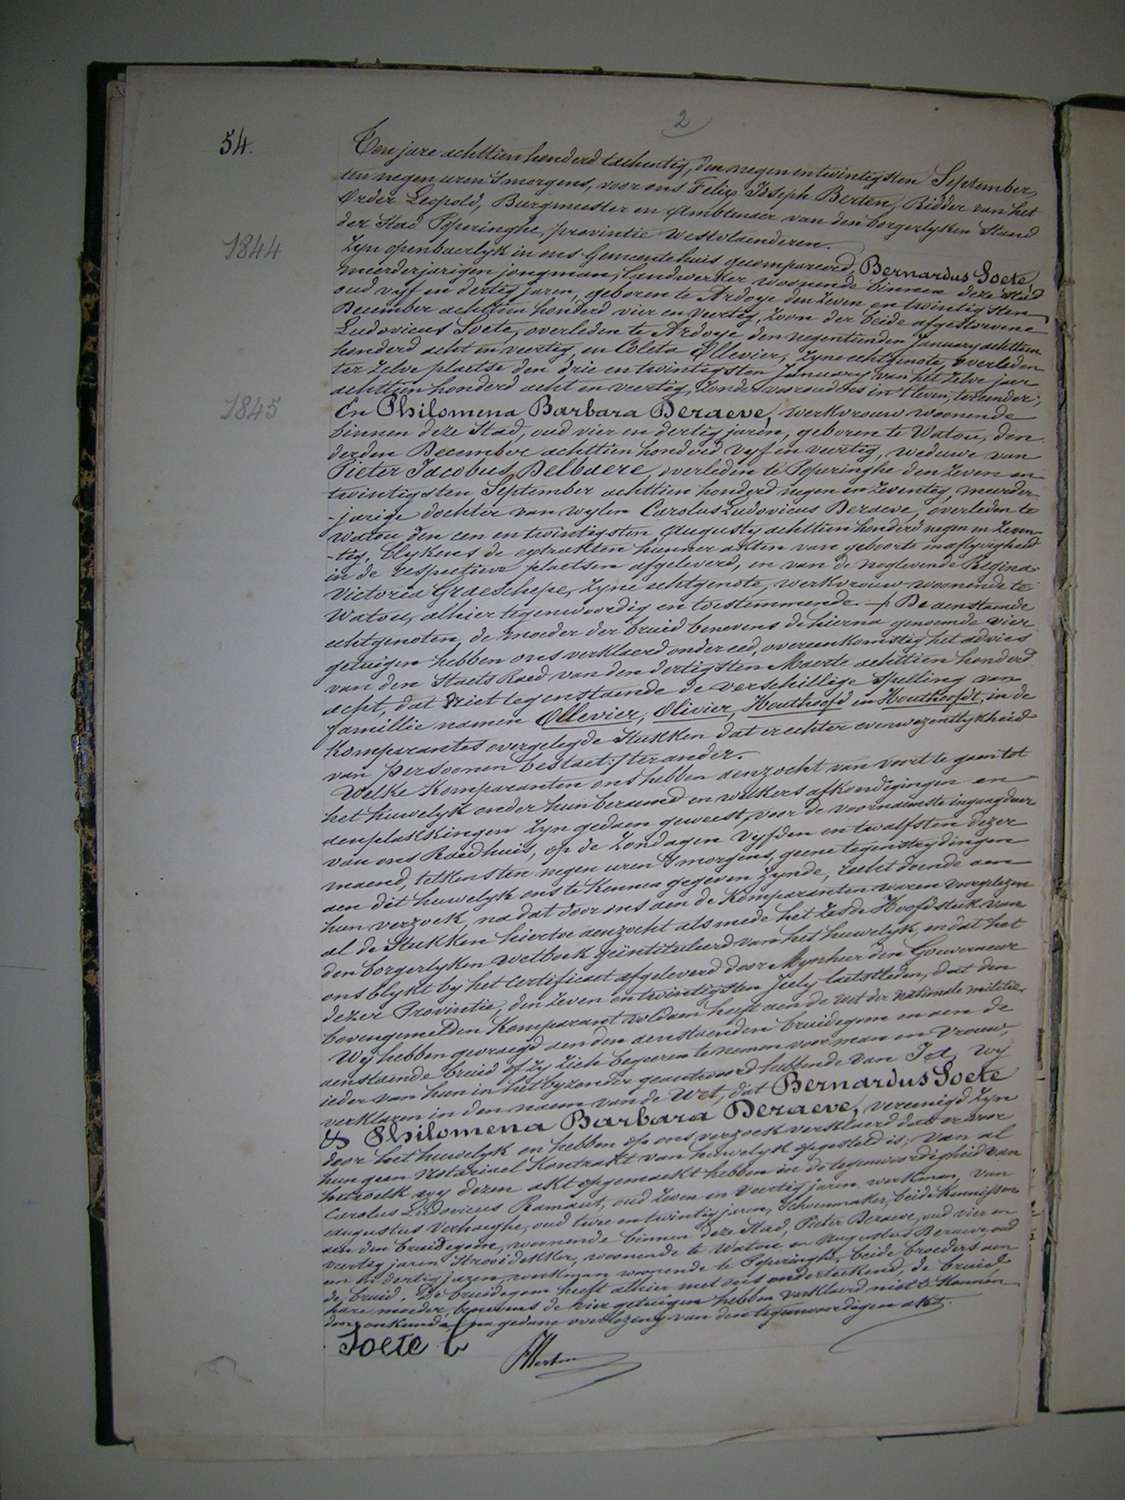 2
54.
Ten jare achttien honderd tachentig, den negen en twintigsten September
ten negen uren 's morgens, voor ons Felix Joseph Berten, Ridder van het
Order Leopold, Burgmeester en Ambtenaer van den borgerlyken Stand
der Stad Poperinghe, provintie Westvlaenderen.
1844
Zyn openbaerlyk in ons Gemeentehuis gecompareerd, Bernardus Soete,
meerderjarigen jongman, landwerker woonende binnen deze Stad
oud vyf en dertig jaren, geboren te Ardoye den zeven en twintigsten
December achttien honderd vier en veertig, zoon der beide afgestorvene
Ludovicus Soete, overleden te Ardoye den negentienden January achttien
honderd acht en veertig, en Coleta Ollevier, zyne echtgenote, overleden
ter zelve plaetse den drie en twintigsten January van het zelve jaer
achttien honderd acht en veertig, zonder voorouders in 't leven, ter eender;
1845
En Philomena Barbara Deraeve, werkvrouw woonende
binnen deze Stad, oud vier en dertig jaren, geboren te Watou, den
derden December achttien honderd vyf en veertig, weduwe van
Pieter Jacobus Delbaere, overleden te Poperinghe den zeven en
twintigsten September achttien honderd negen en zeventig, meerder-
-jarige dochter van wylen Carolus Ludovicus Deraeve, overleden te
Watou den een en twintigsten Augusty achttien honderd negen en zeven-
-tig, blykens de extrakten hunner akten van geboorte en aflyvigheid
in de respectieve plaetsen afgeleverd, en van de noglevende Regina
Victoria Graeschepe, zyne echtgenote, werkvrouw woonende te
Watou, alhier tegenwoordig en toestemmende. De aenstaende
echtgenoten, de moeder der bruid benevens de hierna genoemde vier
getuigen hebben ons verklaerd onder eed, overeenkomstig het advies
van den Staets Raed van den dertigsten Maerte achttien honderd
acht, dat niet tegenstaende de verschillige spelling van
famillie namen Ollevier, Olivier, Houthoofd en Houthoofdt, in de
komparantes overgelegde stukken dat er echter eenwezentlykheid
van persoonen bestaet; ter ander.
Welke komparanten ons hebben aenzocht van voort te gaen tot
het huwelyk onder hun beraemd en welkers afkondigingen en
aenplakkingen zyn gedaen geweest voor de voornaemste ingangdeur
van ons Raedhuis, op de zondagen vyfden en twalfsten dezer
maend, telkens ten negen uren 's morgens, geene tegenstrydingen
aen dit huwelyk ons te kennen gegeven zynde, recht doende aen
hun verzoek, na dat door ons aen de komparanten waren voorgelezen
al de stukken hiertoe aenzocht als mede het zesde Hoofdstuk van
den borgerlyken wetboek geïntituleerd van het huwelyk, en dat het
ons blykt by het certificaet afgeleverd door Mynheer den Gouverneur
dezer Provintie, den zeven en twintigsten july laetstleden, dat den
bovengemelden komparant voldaen heeft aen de wet der nationale militie.
Wy hebben gevraegd aen den aenstaenden bruidegom en aen de
aenstaende bruid of zy zich begeeren te nemen voor man en vrouw,
ieder van hun in het byzonder geantwoord hebbende van Ja, wy
verklaren in den naem van de Wet, dat Bernardus Soete
& Philomena Barbara Deraeve, vereenigd zyn
door het huwelyk en hebben op ons verzoek verklaerd dat er voor
hun geen Notariael Kontrakt van huwelyk opgesteld is; van al
hetwelk wy dezen akt opgemaekt hebben in de tegenwoordigheid van
Carolus Ludovicus Ramaut, oud zeven en veertig jaren werkman, van
Augustus Verhaeghe, oud twee en twintig jaren, schoenmaker, beide kennissen
aen den bruidegom, woonende binnen deze Stad, Pieter Deraeve, oud vier en
veertig jaren strooidekker, woonende te Watou en Augustus Deraeve, oud
dertig jaren, werkman woonende te Poperinghe, beide broeders aen
de bruid. De bruidegom heeft alhier met ons onderteekend, de bruid
hare moeder benevens de vier getuigen hebben verklaerd niet te konnen
door onkunde, na gedane overlezing van den tegenwoordigen akt.
Soete B
F Berten